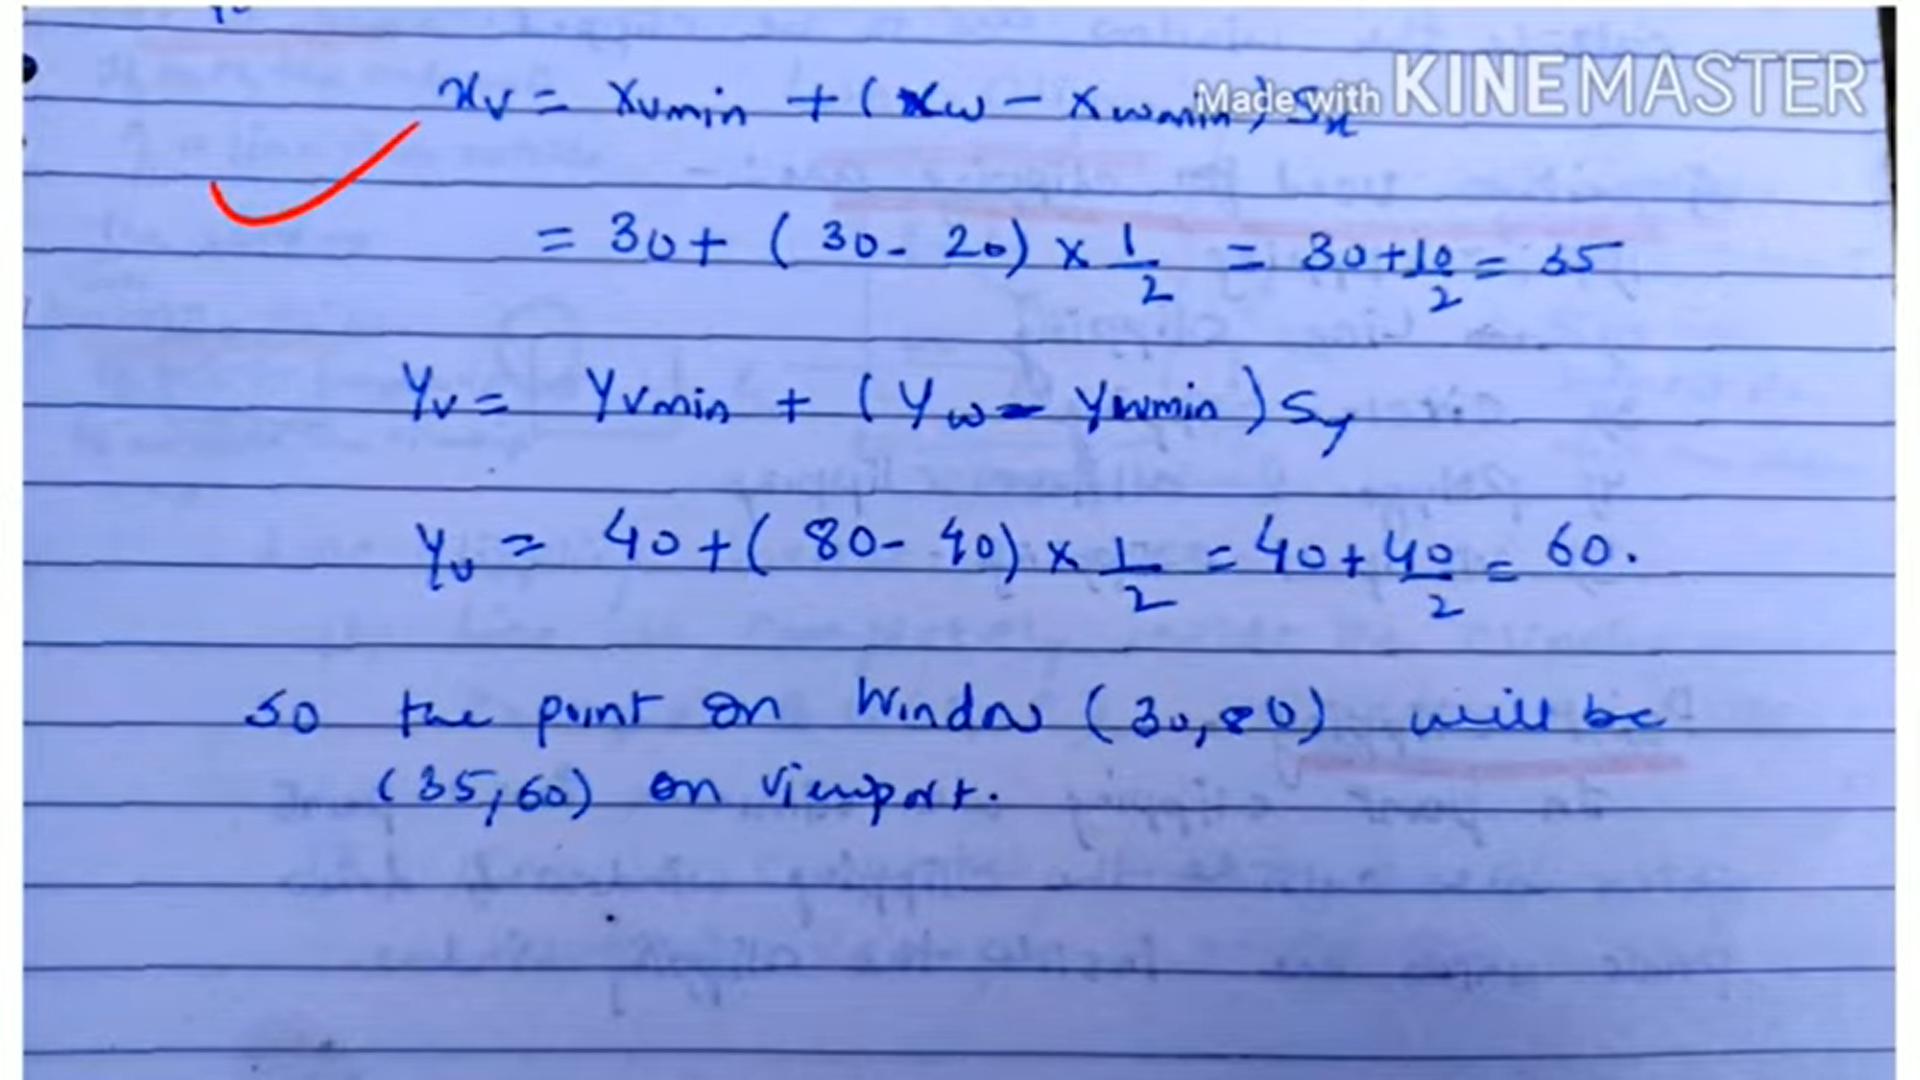 Made with KINEMASTER
xv = xvmin + (xw - xwmin) Sx
= 30 + ( 30 - 20) × 1/2 = 30 + 10/2 = 35
Yv = Yvmin + (Yw - Ywmin) Sy
Yv = 40 + ( 80 - 40) × 1/2 = 40 + 40/2 = 60.
So the point on Window (30,80) will be
(35,60) on viewport.